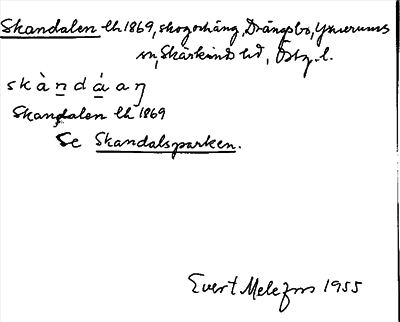 Skandalen lh 1869, skog o. häng, Drängsbo, Yxnerums
sn, Skärkinds hd, Östg. l.
skàndáaŋ
Skandalen lh 1869
Se Skandalsparken.
Evert Melefors 1955